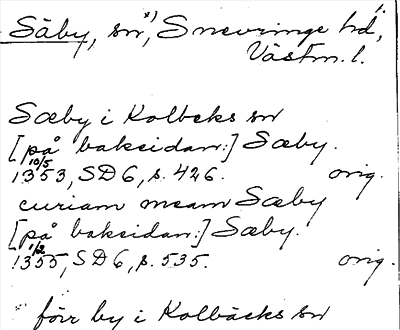 Säby, sn *), Snevringe hd, 1.
Västm. l.
Sæby i Kolbeks sn
[på baksidan:] Sæby.
1353 10/5, SD 6, s. 426. orig.
curiam meam Sæby
[på baksidan:] Sæby.
1355 1/2, SD 6, s. 535. orig.
förr by i Kolbäcks sn